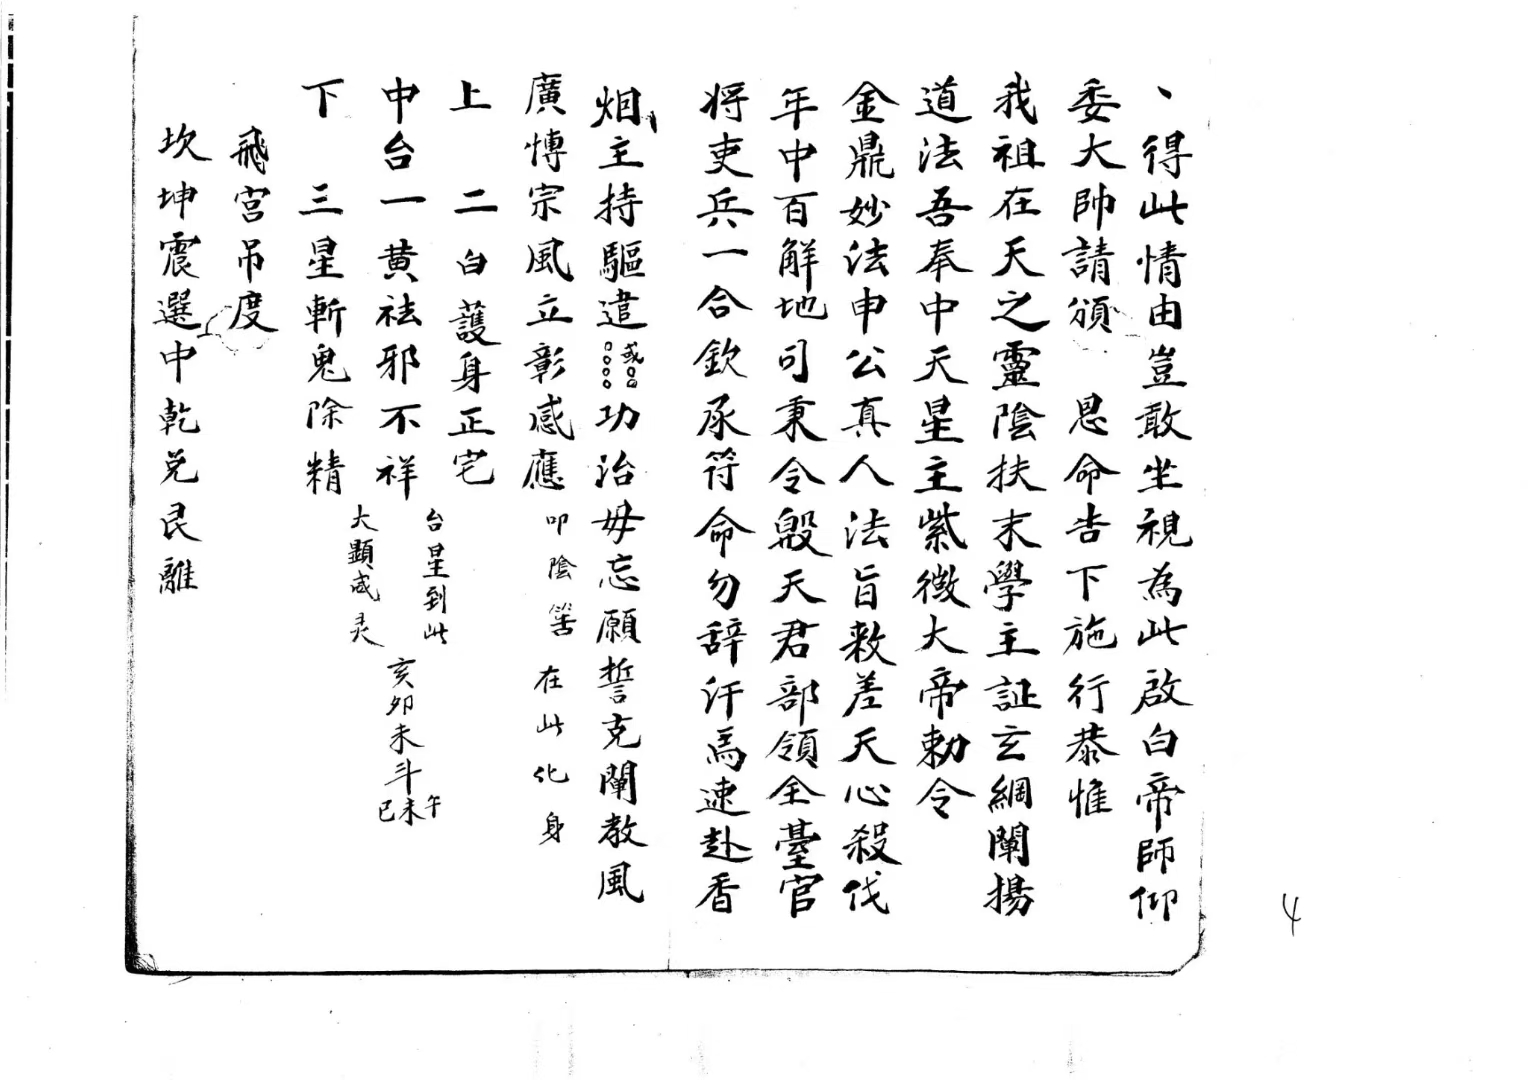 、得此情由豈敢坐視為此啟白帝師仰
委大帥請頒 恩命告下施行恭惟
我祖在天之靈陰扶末學主証玄綱闡揚
道法吾奉中天星主紫微大帝勅令
金鼎妙法申公真人法旨敕差天心殺伐
年中百解地司秉令殷天君部領全臺官
将吏兵一合欽承符命勿辞汗馬速赴香
烟主持驅遣或○○○○○○功治毋忘願誓克闡教風
廣慱宗風立彰感應 叩陰筶 在此化身
上 二白護身正宅
中台一黃祛邪不祥 台星到此 亥卯未斗午未巳
下 三星斬鬼除精 大顕威灵
飛宮吊度
坎坤震選中乾兌艮離
4